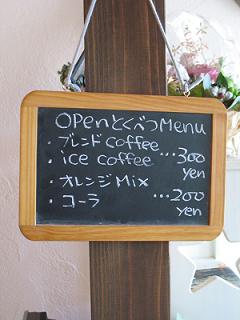 OPenとくべつMenu
・ブレンドcoffee
・ice coffee …300 yen
・オレンジMix
・コーラ …200 yen